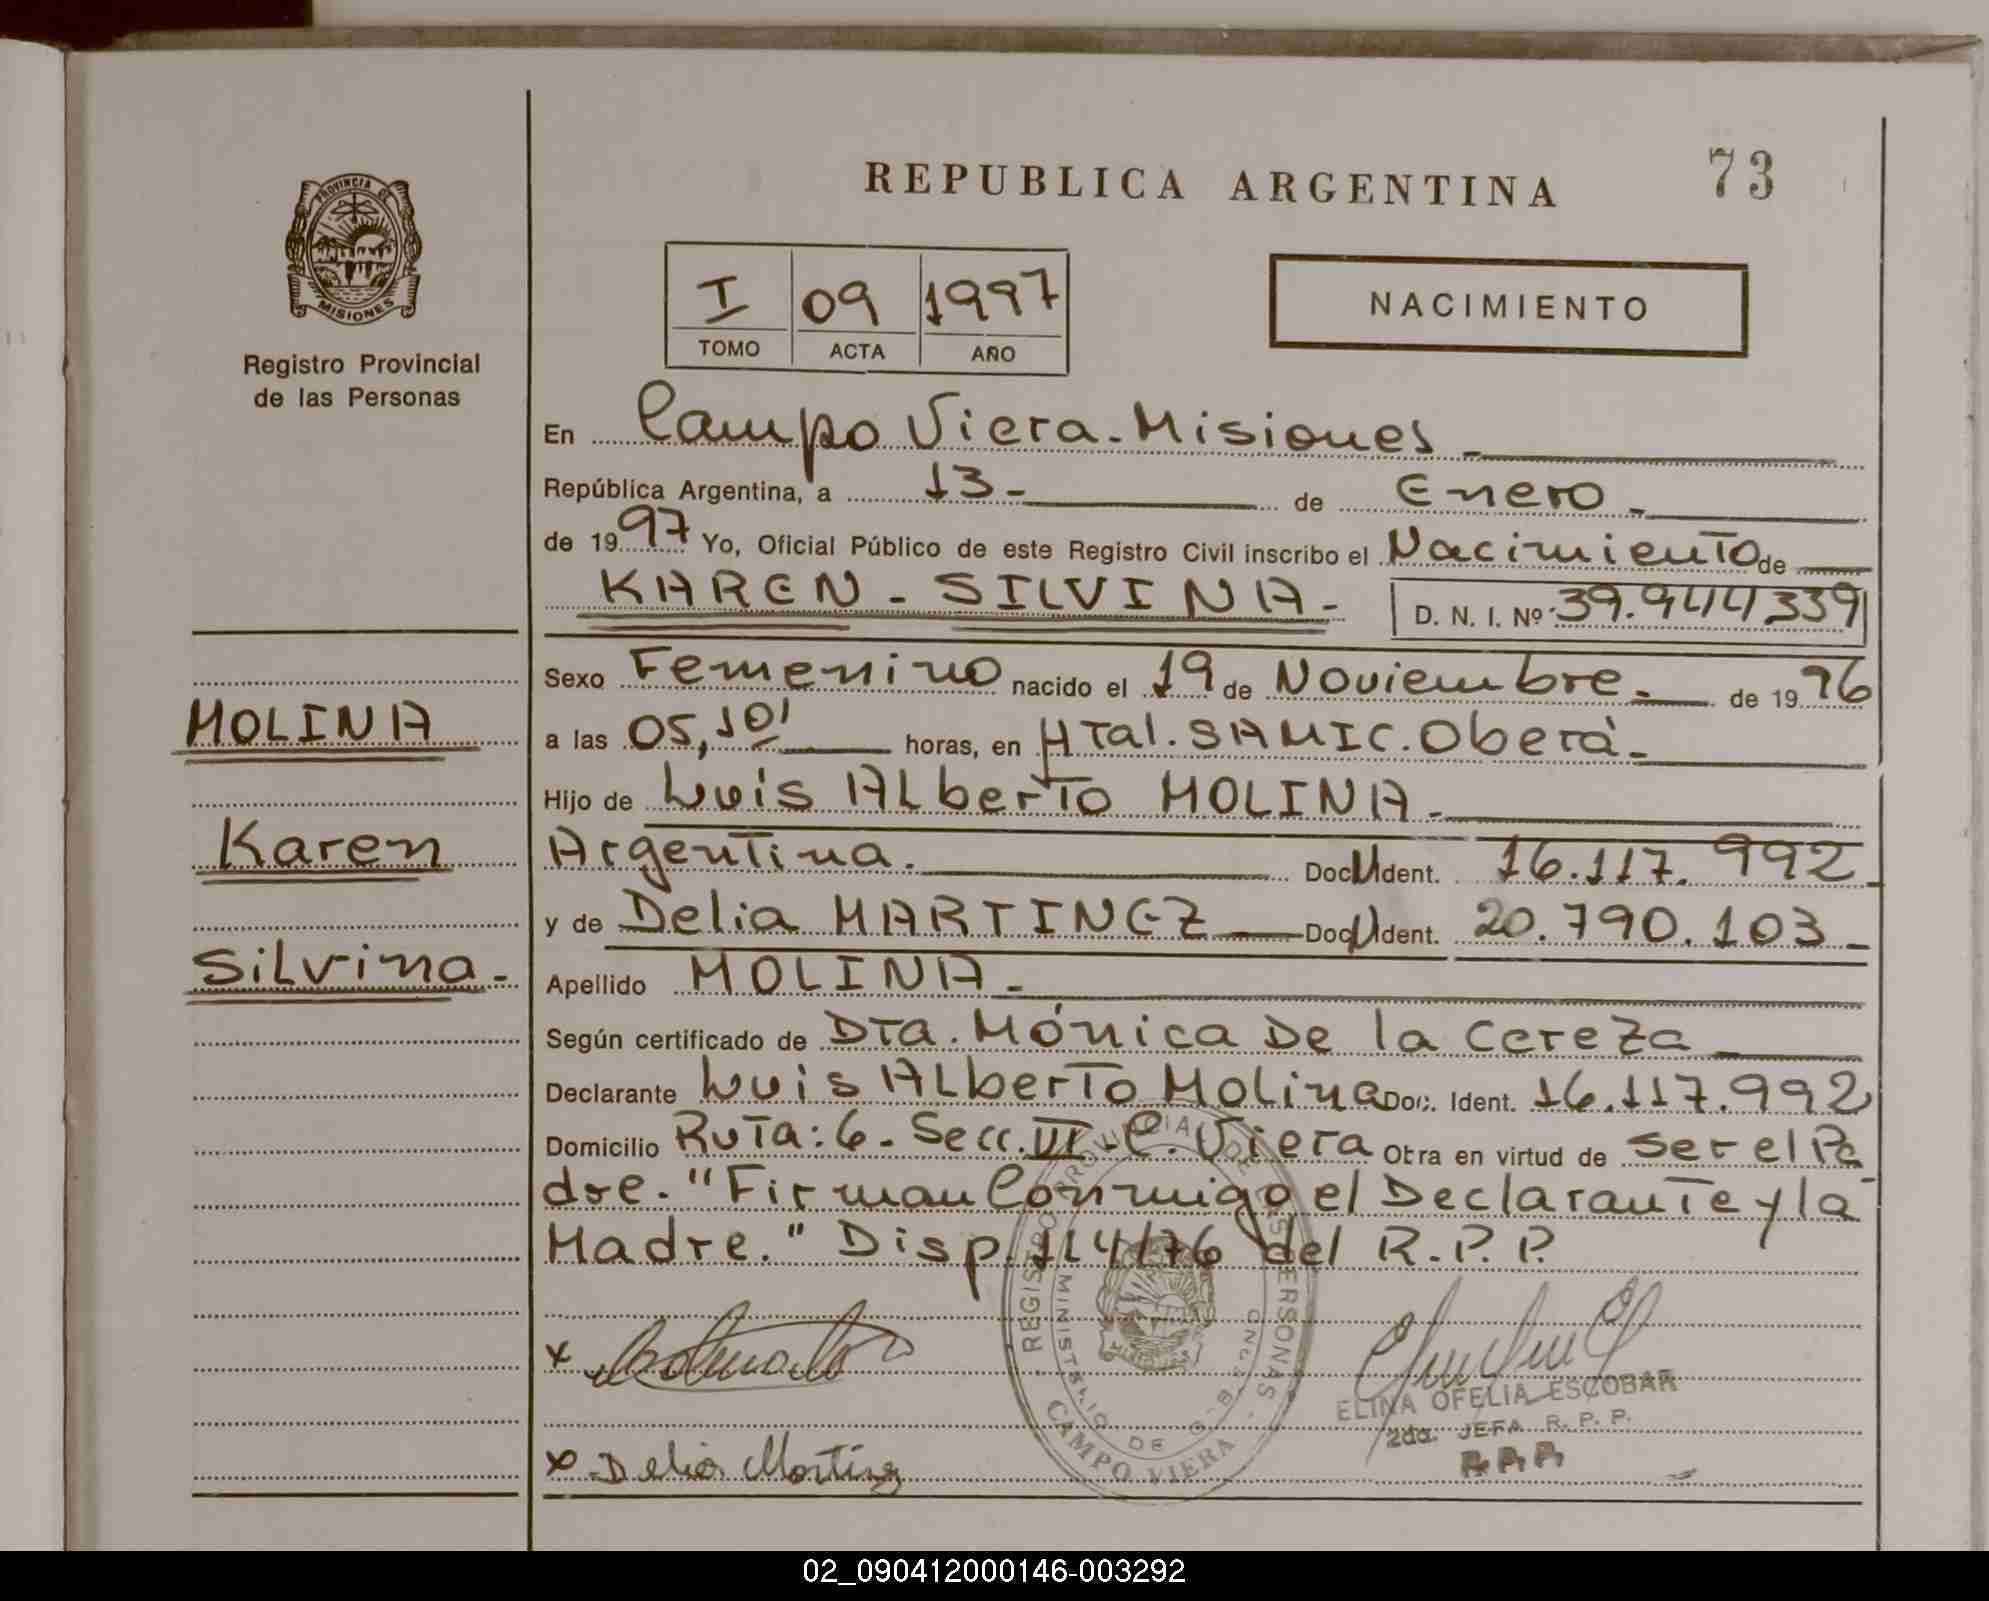 REPUBLICA ARGENTINA
73
PROVINCIA DE
MISIONES
Registro Provincial
de las Personas
I 09 1997
TOMO ACTA AÑO
NACIMIENTO
En Campo Viera - Misiones -
República Argentina, a 13 - de Enero -
de 1997 Yo, Oficial Público de este Registro Civil inscribo el Nacimiento de
KAREN - SILVINA - D. N. I. Nº 39.944339
Sexo Femenino nacido el 19 de Noviembre - de 1996
MOLINA
a las 05,10' horas, en HTal. SAMIC. Oberá -
Hijo de Luis ALberTo MOLINA -
Karen
Argentina. Doc U Ident. 16.117.992
y de Delia MARTINEZ Doc U Ident. 20.790.103 -
Silvina -
Apellido MOLINA -
Según certificado de Dra. Mónica De la Cereza
Declarante Luis ALberTo Molina Doc. Ident. 16.117.992
Domicilio RuTa: 6 - Secc. VI - C. Viera Otra en virtud de ser el Pa
dre. "Firman Conmigo el Declarante y la
Madre." Disp. 114/76 del R.P.P.
REGISTRO PROVINCIAL DE LAS PERSONAS
MINISTERIO DE G-B-
CAMPO VIERA
x
ELINA OFELIA ESCOBAR
2da. JEFA R. P. P.
R.P.P.
x Delia Martinez
02_090412000146-003292